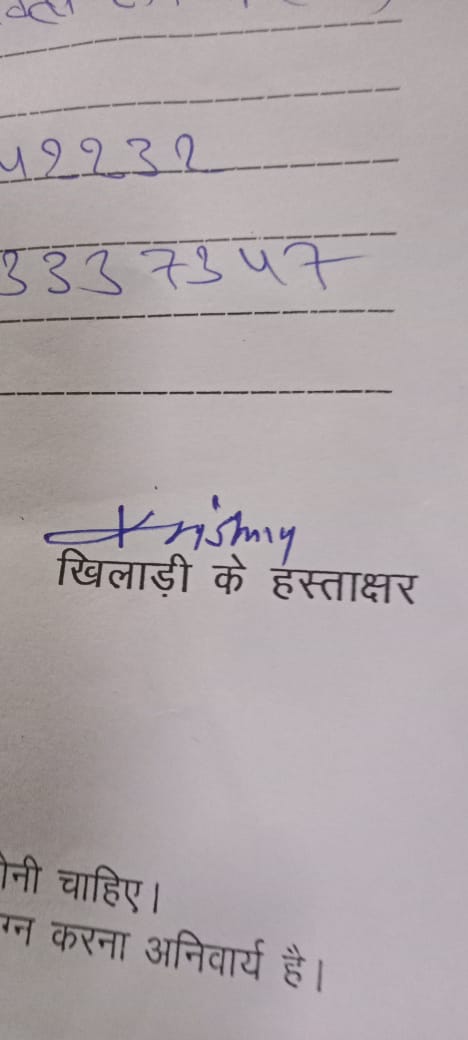 42232
3337347
Krishna
खिलाड़ी के हस्ताक्षर
नी चाहिए।
ग्न करना अनिवार्य है।